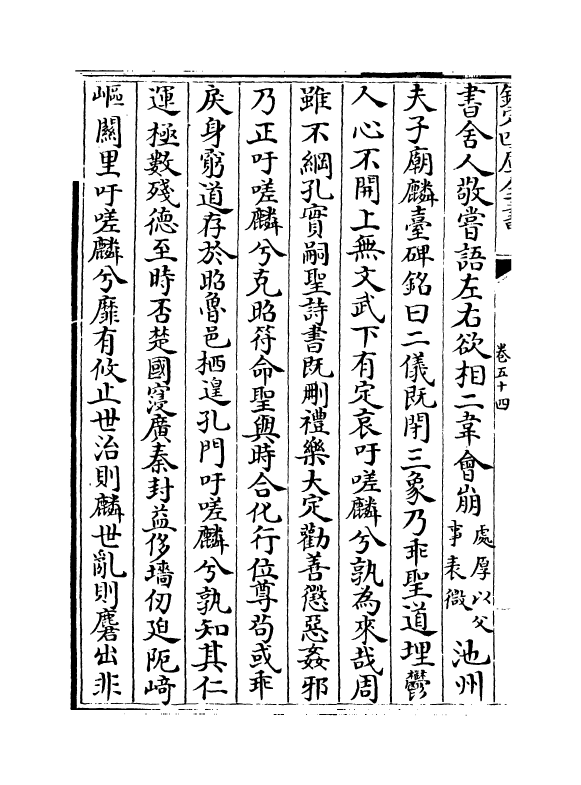 欽定四庫全書
卷五十四
書舍人敬嘗語左右欲相二韋會崩處厚以父事表微池州
夫子廟麟臺碑銘曰二儀既閉三象乃乖聖道埋鬱
人心不開上無文武下有定哀吁嗟麟兮孰為來哉周
雖不綱孔實嗣聖詩書既刪禮樂大定勸善懲惡姦邪
乃正吁嗟麟兮克昭符命聖與時合化行位尊苟或乖
戾身窮道存於昭魯邑栖遑孔門吁嗟麟兮孰知其仁
運極數殘德至時否楚國寖廣秦封益侈墻仞迫阨崎
嶇闕里吁嗟麟兮靡有攸止世治則麟世亂則麏出非